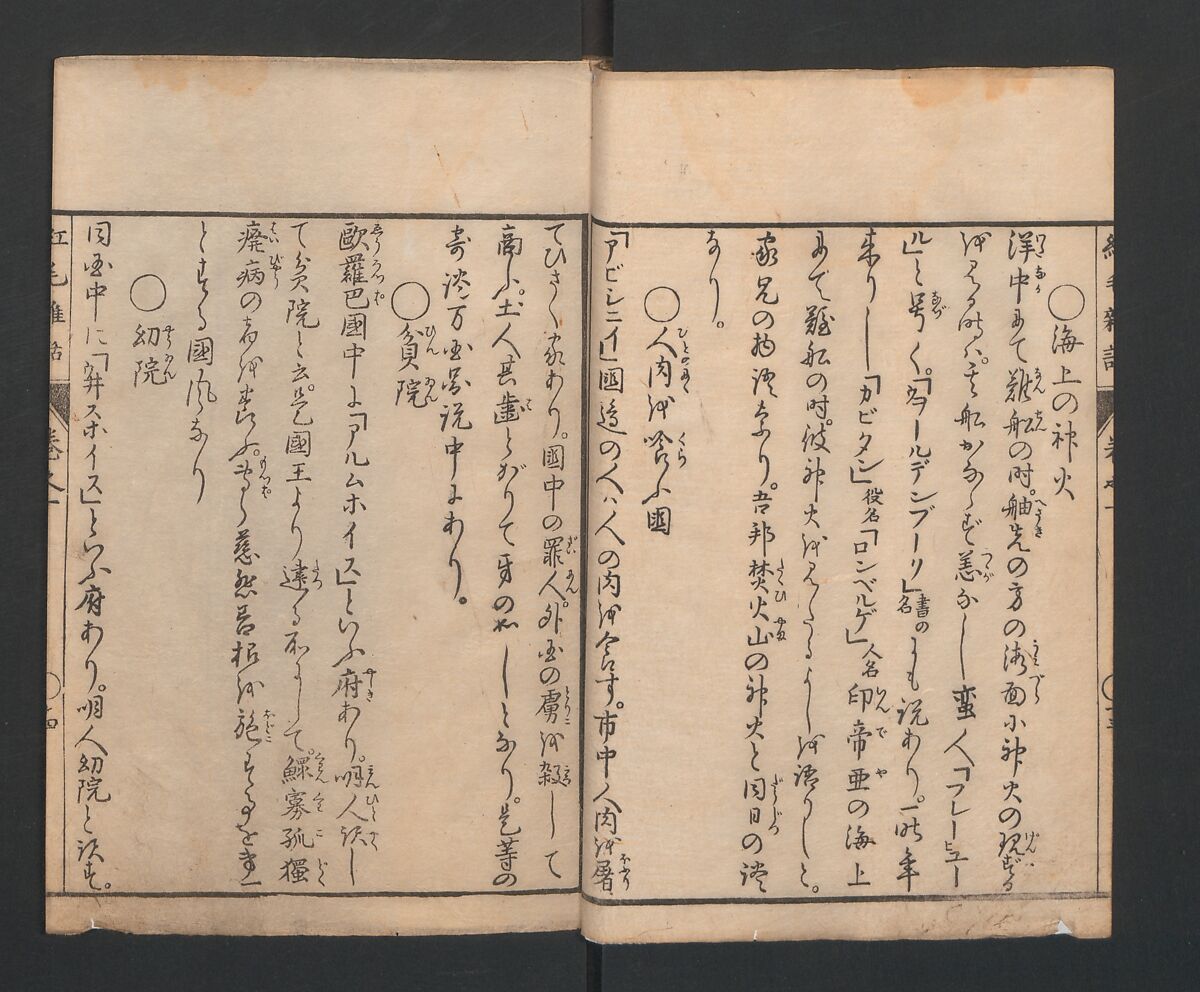 ○海上の神火
洋中にて難船の時。舳先の方の海面に神火の現ずる
を見る時ハ。其船かならず恙なし蛮人「フレーヒュー
ル」と号く。「ウヲールデンブーリ」書の名にも説あり。一昨年
来りし「カピタン」役名「ロンベルゲ」人名印帝亜の海上
にて難船の時。彼神火を見たるよしを語りしと。
家兄の物語なり。吾邦焚火山の神火と同日の談
なり。
○人肉を喰ふ国
「アビシニイ」国辺の人ハ人の肉を食す。市中人肉を屠
てひさく家あり。国中の罪人。外国の虜を殺して
商ふ。土人其歯とがりて牙の如しとなり。是等の
寄談万国図説中にあり。
○貧院
欧羅巴國中に「アルムホイス」といふ府あり。明人訳し
て貧院と云。是國王より建る所にして。鰥寡孤獨
癈病の者を養ふ。専ら慈悲善根を施す事を第一
とする國風なり
○幼院
同国中に「ウェースホイス」といふ府あり。明人幼院と訳す。
紅毛雑話
巻之一
○十四